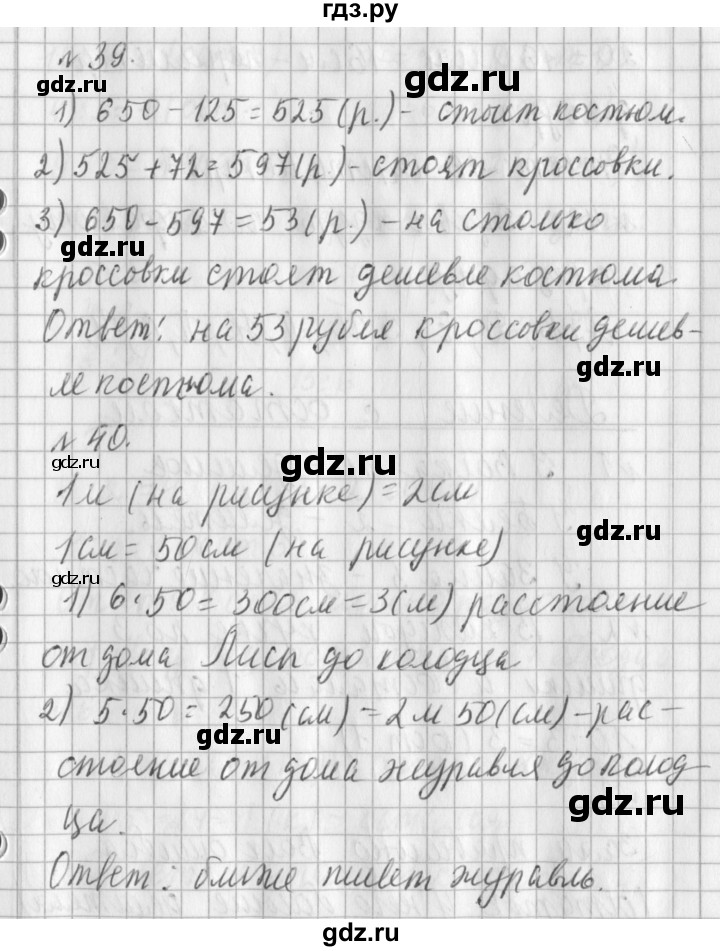 гдз.ру
№ 39.
1) 650 - 125 = 525 (р.) - стоит костюм.
gdz.ru
gdz.ru
2) 525 + 72 = 597 (р.) - стоят кроссовки.
gdz.ru
3) 650 - 597 = 53 (р.) - на столько
gdz.ru
кроссовки стоят дешевле костюма
Ответ: на 53 рубля кроссовки дешев-
gdz.ru
ле костюма.
№ 40.
gdz.ru
gdz.ru
1м (на рисунке) = 2см
gdz.ru
1см = 50см (на рисунке)
gdz.ru
1) 6 · 50 = 300см = 3(м) расстояние
от дома Лисы до колодца
2) 5 · 50 = 250 (см) = 2м 50(см) - рас-
gdz.ru
gdz.ru
стояние от дома журавля до колод
gdz.ru
ца.
Ответ: ближе живет журавль.
gdz.ru